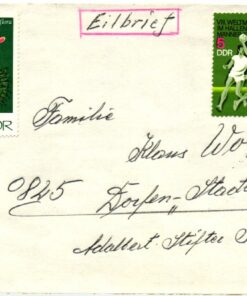 Eilbrief
flora
DR
VIII. WELTM
IM HALLEN
MÄNNER
5
DDR
Familie
Klaus Wo
0825 Dorfen-"Stadt
Adalbert-Stifter S